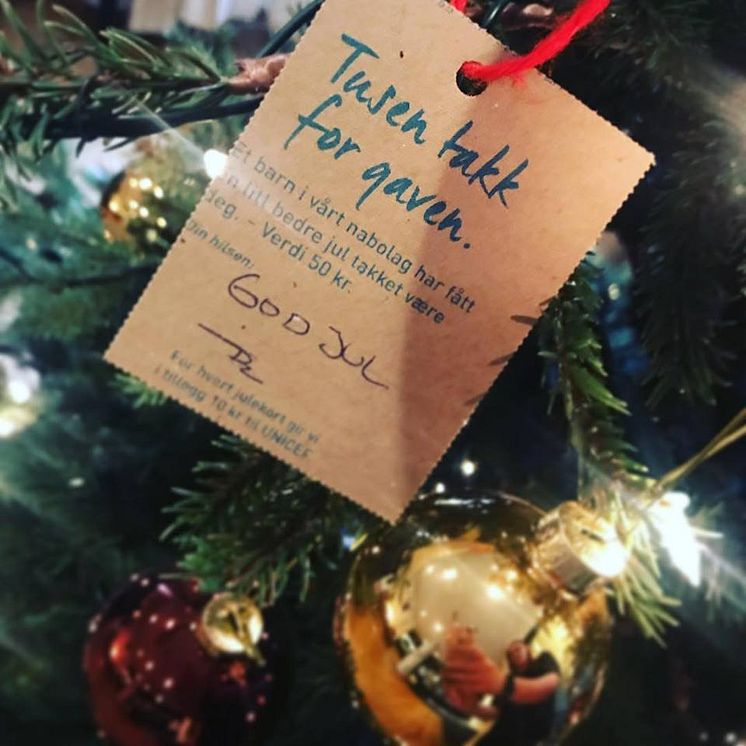 Tusen takk
for gaven.
Et barn i vårt nabolag har fått
en litt bedre jul takket være
deg. – Verdi 50 kr.
Din hilsen:
GOD JUL
For hvert julekort gir vi
i tillegg 10 kr til UNICEF